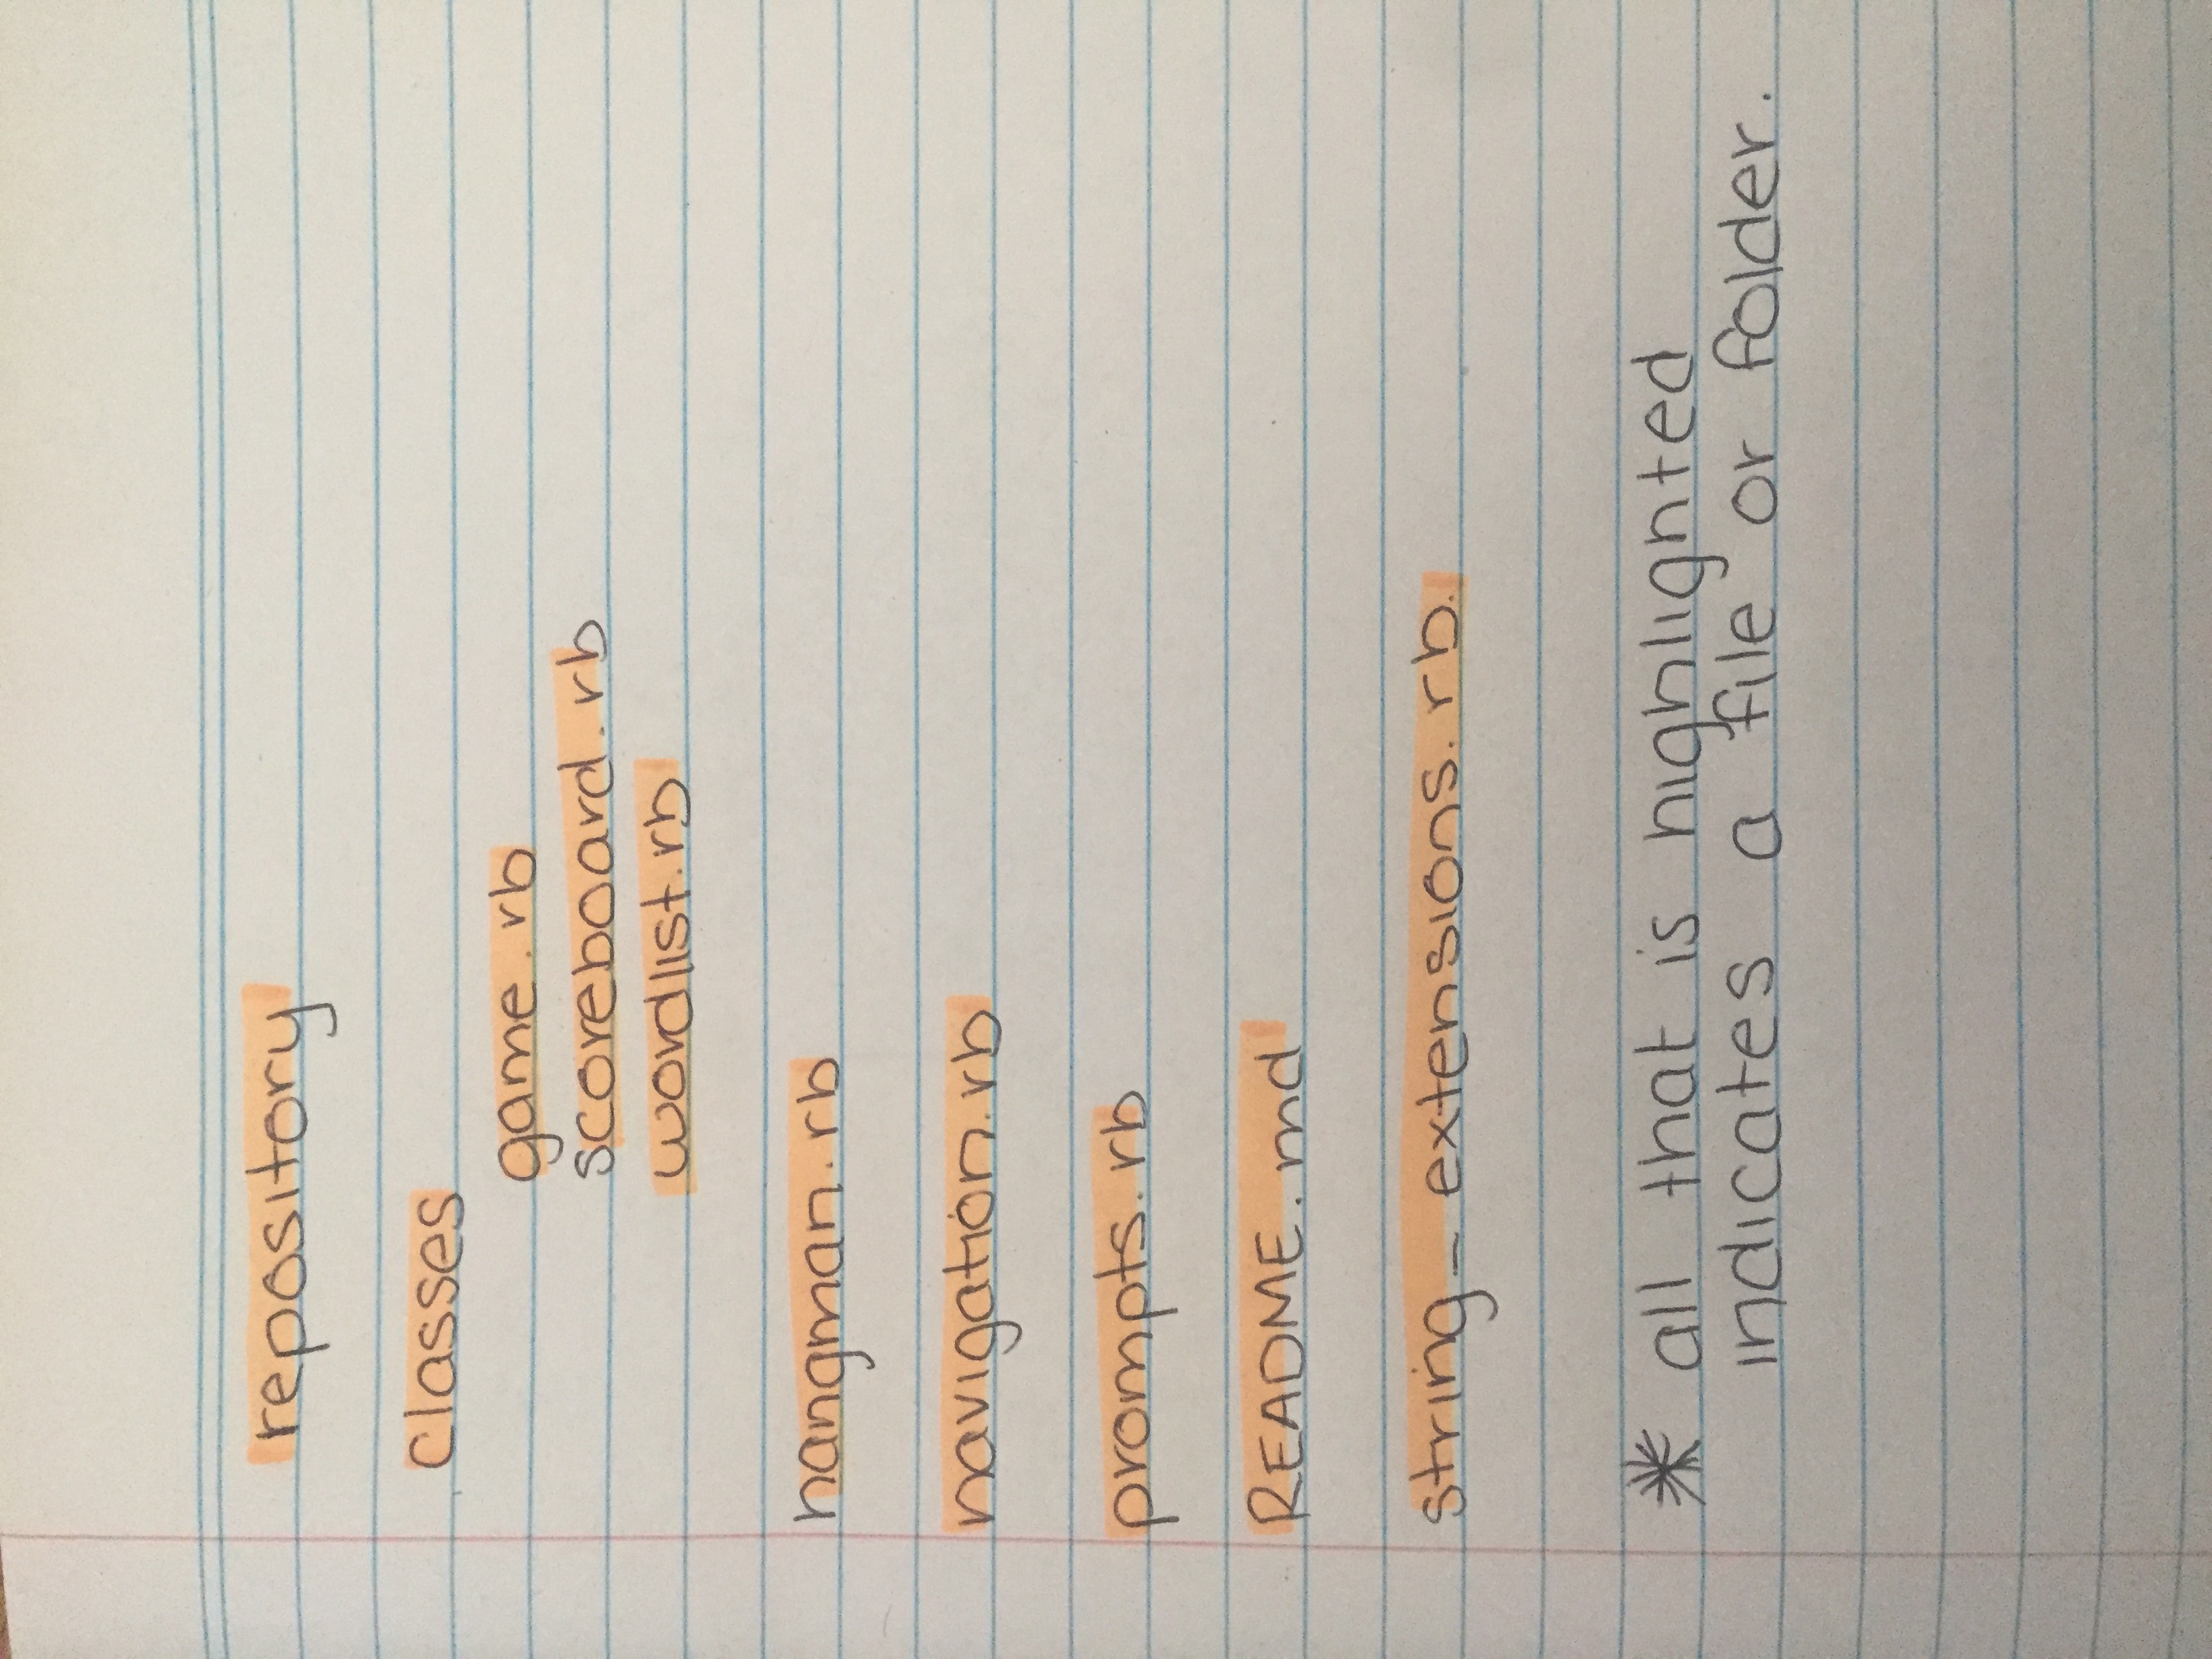 repository
classes
game.rb
scoreboard.rb
wordlist.rb
hangman.rb
navigation.rb
prompts.rb
README.md
string_extensions.rb.
* all that is highlighted
indicates a file or folder.